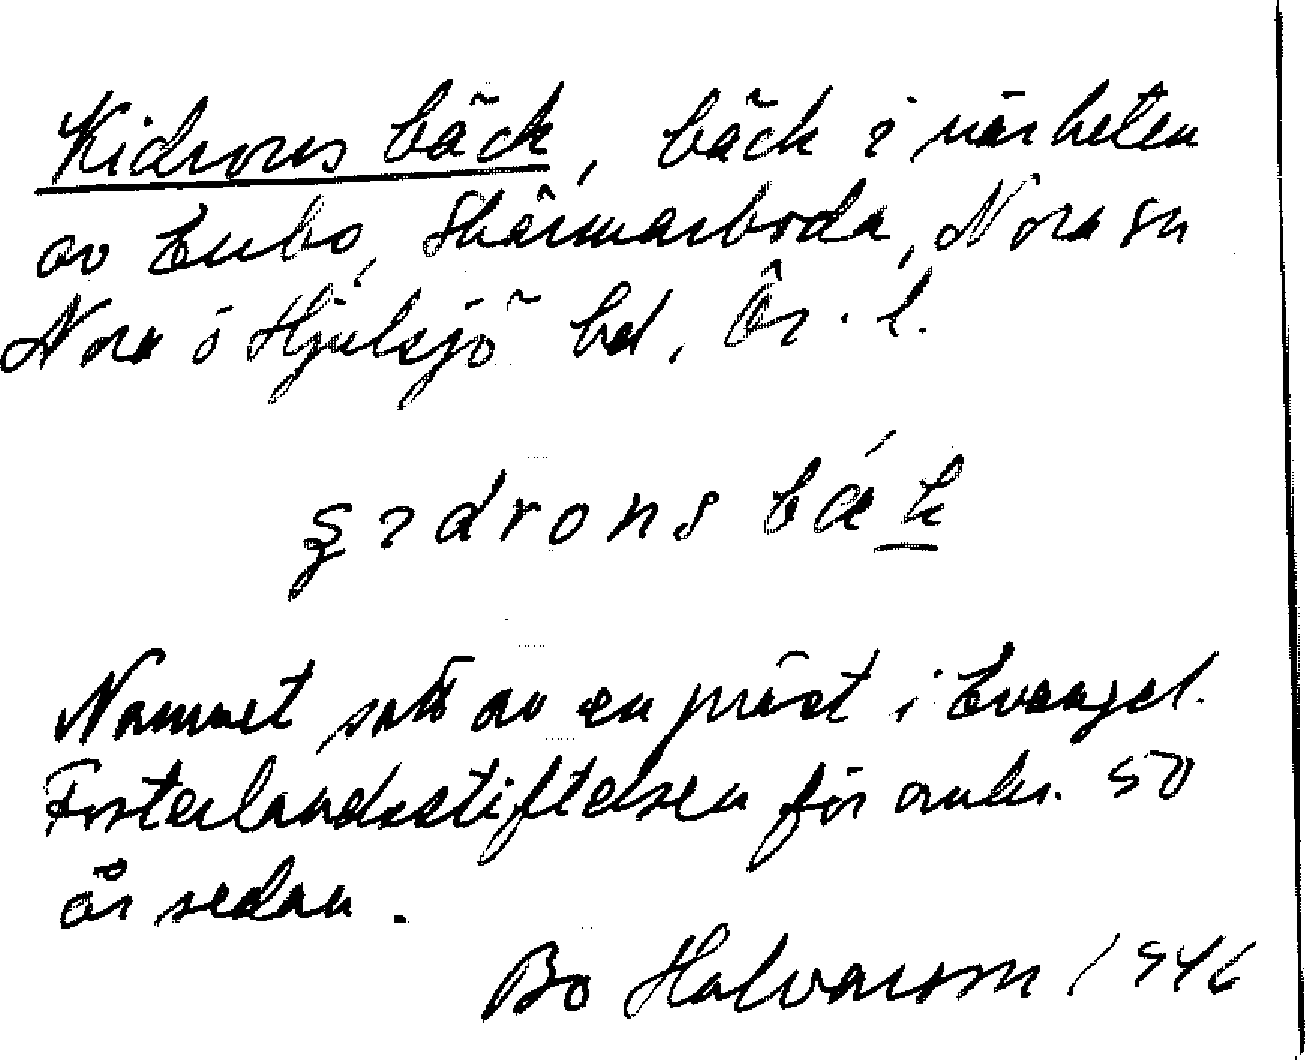 Kidrons bäck, bäck i närheten
av Enbo, Skärmarboda, Nora sn
Nora o Hjulsjö bd, Ör. l.
drons bäk
Namnet satt av en präst i Evangel.
Fosterlandsstiftelsen för omkr. 50
år sedan.
Bo Halvarsson 1946